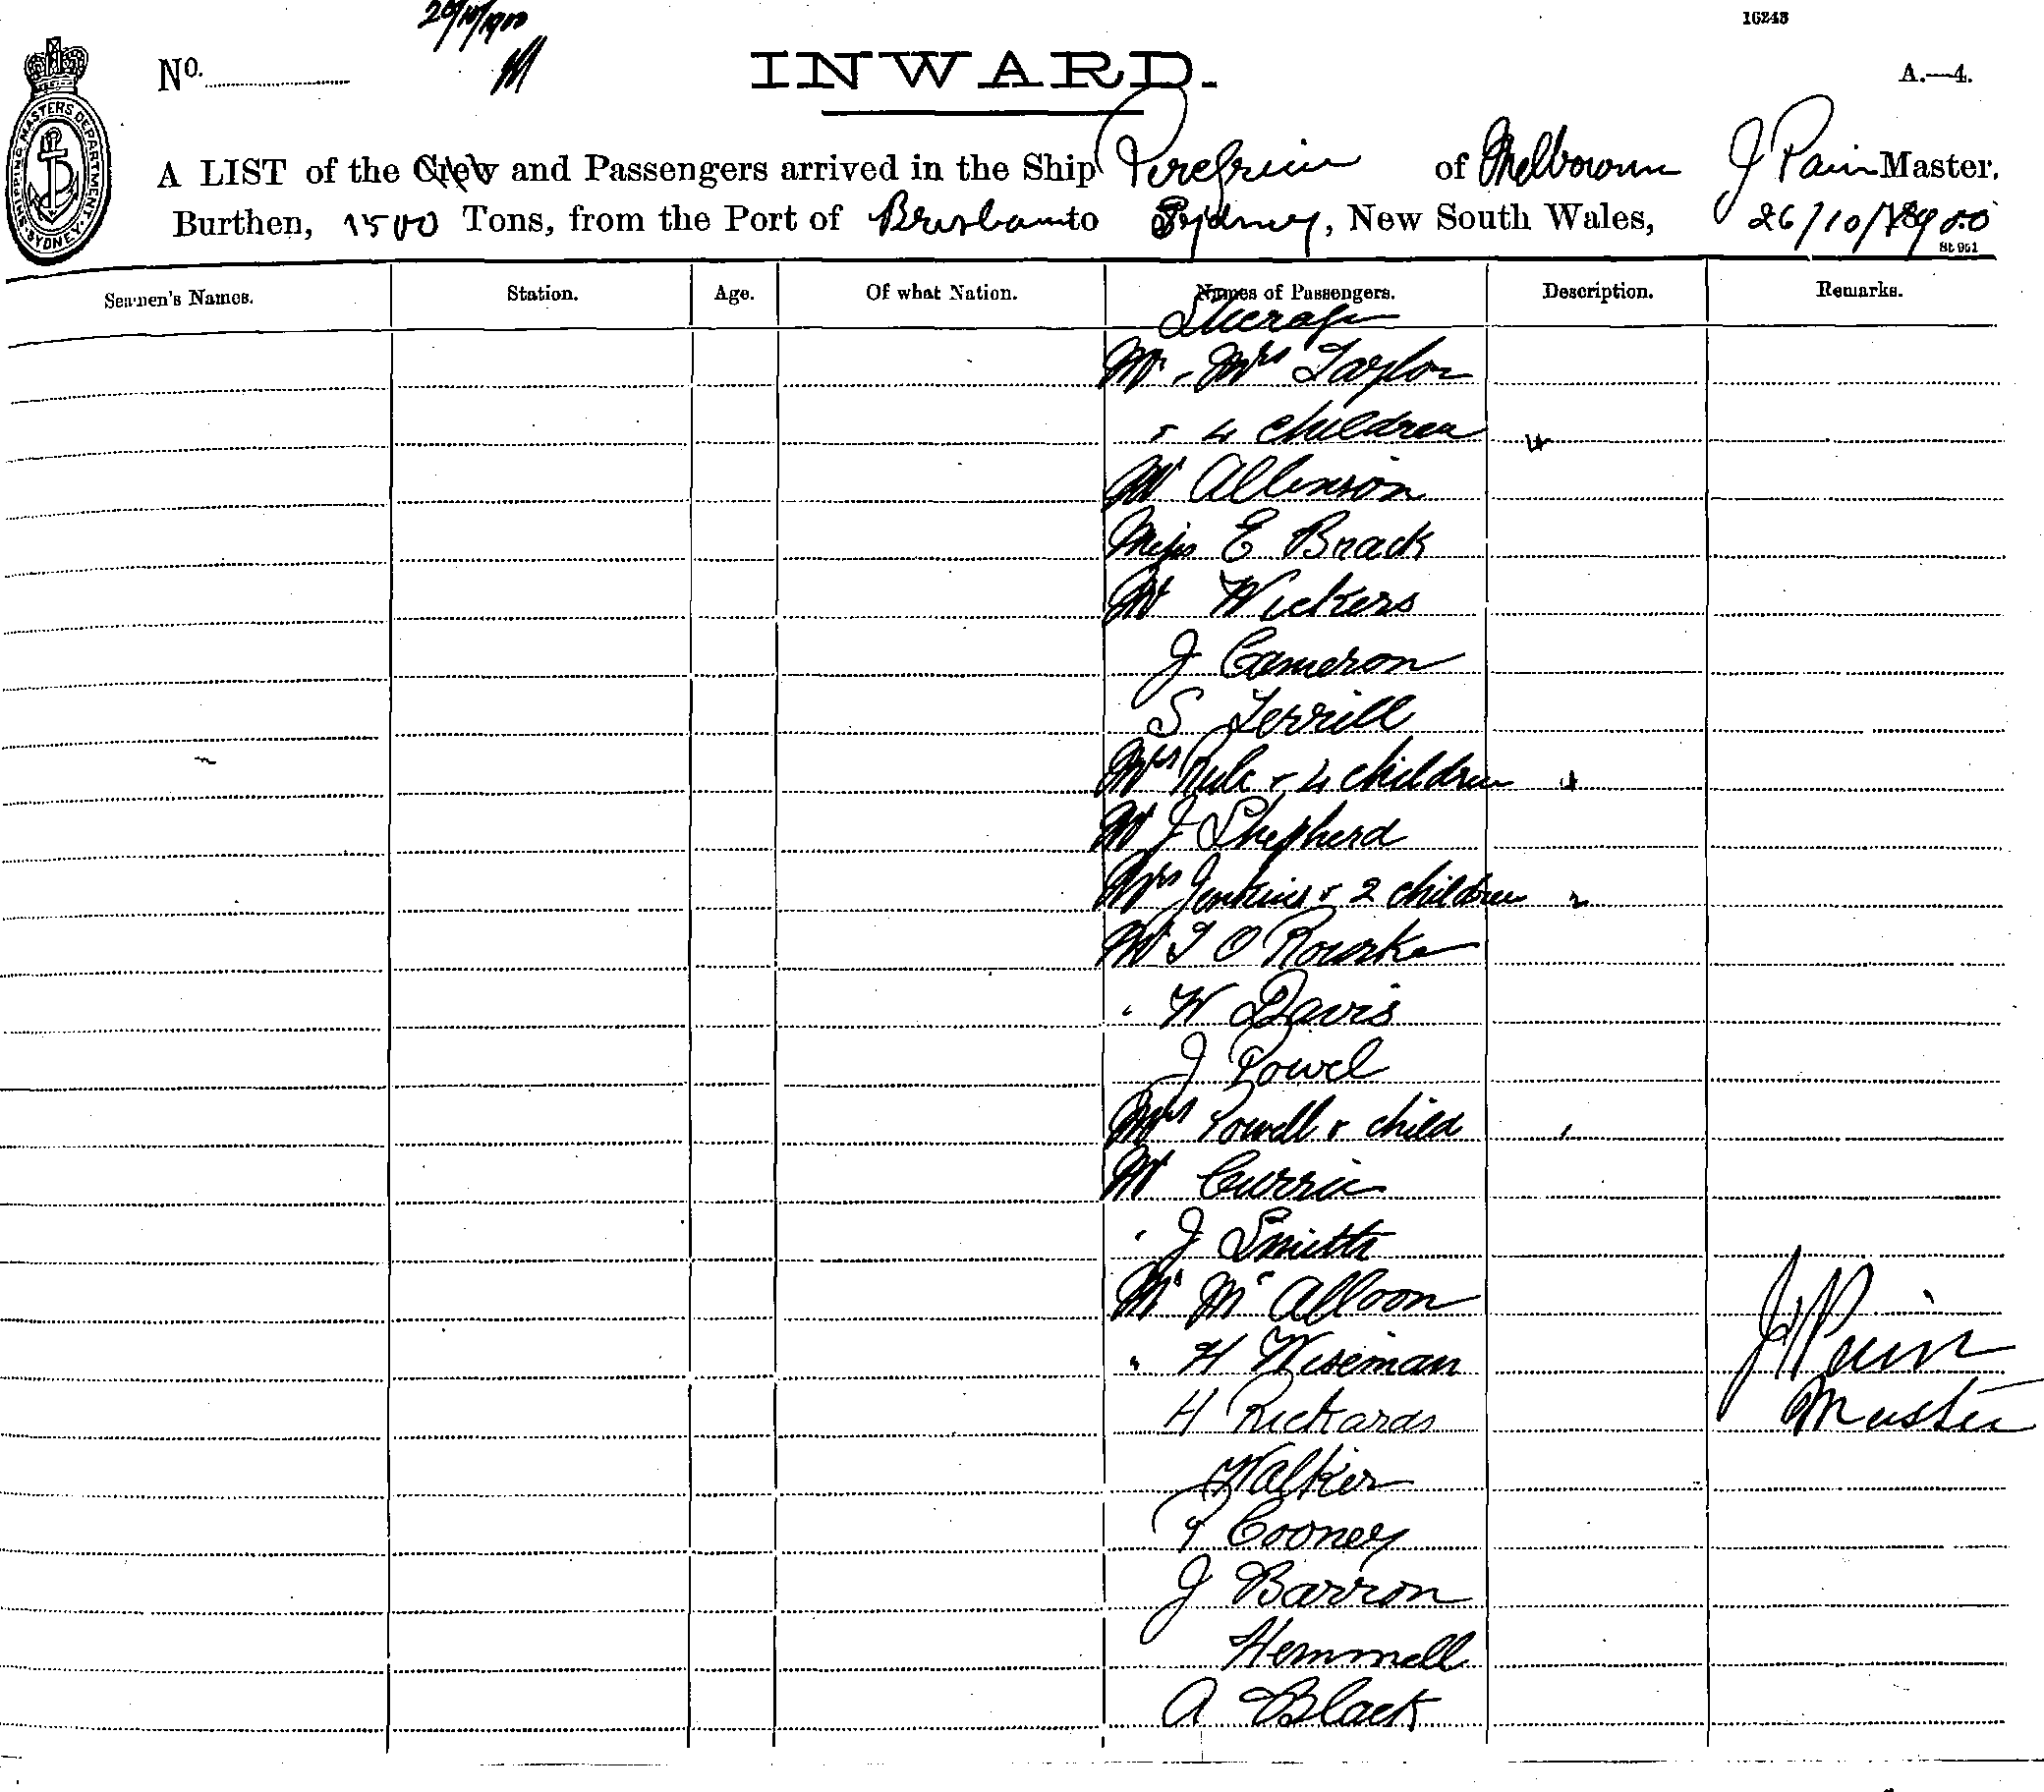 26/10/1900
16243
No.
INWARD.
A.—4.
SHIPPING MASTERS DEPARTMENT. SYDNEY.
A LIST of the Crew and Passengers arrived in the Ship Peregrine of Melbourne J Pain Master.
Burthen, 1500 Tons, from the Port of Brisbane to Sydney, New South Wales, 26/10/1900
St 961
Seamen's Names. Station. Age. Of what Nation. Names of Passengers. Description. Remarks.
Steerage
Mr - Mrs Taylor
+ 4 children 4
Mr Allenson
Miss E Brack
Mr Wickers
J Cameron
S Terrill
Mrs Rule + 4 children 4
Mr J Shepherd
Mrs Jenkins + 2 children 2
Mr T O Rourke
" W Davis
J Powel
Mrs Powell + child 1
Mr Currie
" J Smith
Mr Mc Alloon
" H Wiseman
J Pain
H Rickards
Master
Walker
P Cooney
J Barron
Hemmell
A Black